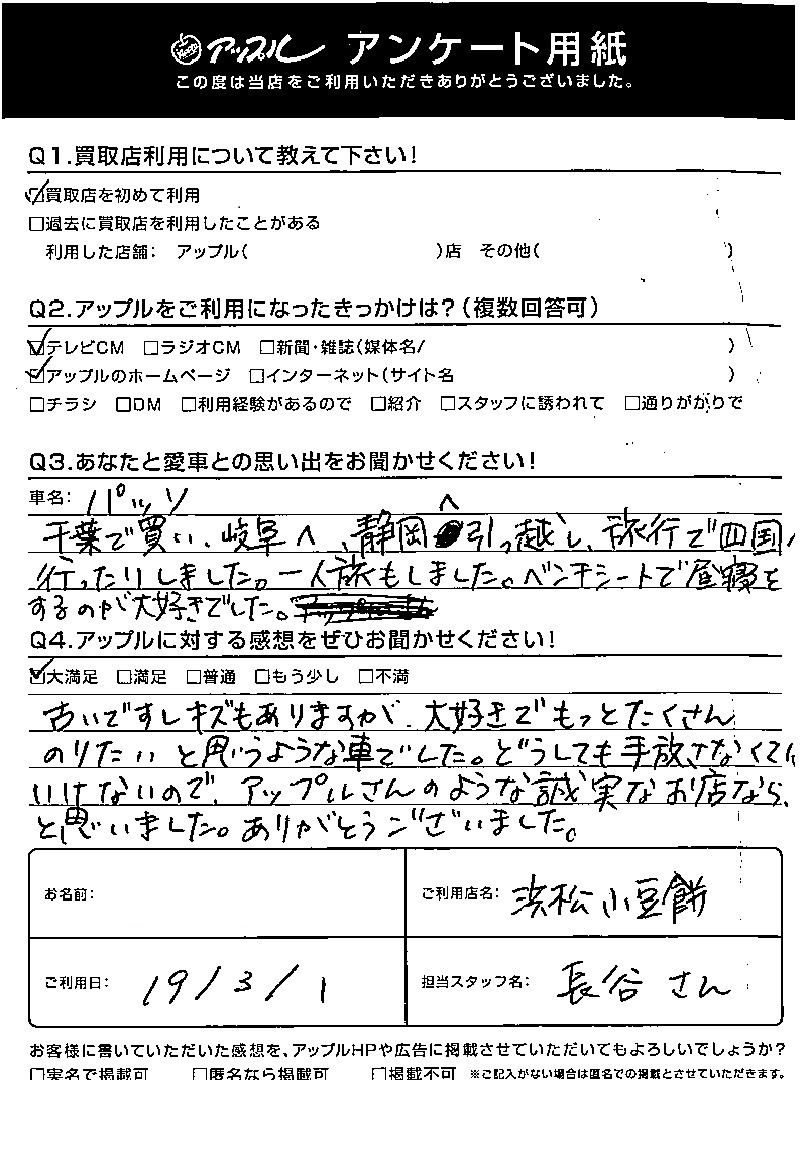 アップル アンケート用紙
この度は当店をご利用いただきありがとうございました。
Q1.買取店利用について教えて下さい！
☑買取店を初めて利用
□過去に買取店を利用したことがある
利用した店舗： アップル( )店 その他( )
Q2.アップルをご利用になったきっかけは？(複数回答可)
☑テレビCM □ラジオCM □新聞・雑誌(媒体名/ )
☑アップルのホームページ □インターネット(サイト名 )
□チラシ □DM □利用経験があるので □紹介 □スタッフに誘われて □通りがかりで
Q3.あなたと愛車との思い出をお聞かせください！
車名： パッソ
千葉で買い、岐阜へ、静岡へ引っ越し、旅行で四国へ
行ったりしました。一人旅もしました。ベンチシートで昼寝を
するのが大好きでした。
Q4.アップルに対する感想をぜひお聞かせください！
☑大満足 □満足 □普通 □もう少し □不満
古いですしキズもありますが、大好きでもっとたくさん
のりたいと思うような車でした。どうしても手放さなくては
いけないので、アップルさんのような誠実なお店なら、
と思いました。ありがとうございました。
お名前：
ご利用店名： 浜松小豆餅
ご利用日： 19/3/1
担当スタッフ名： 長谷さん
お客様に書いていただいた感想を、アップルHPや広告に掲載させていただいてもよろしいでしょうか？
□実名で掲載可 □匿名なら掲載可 □掲載不可 ※ご記入がない場合は匿名での掲載とさせていただきます。